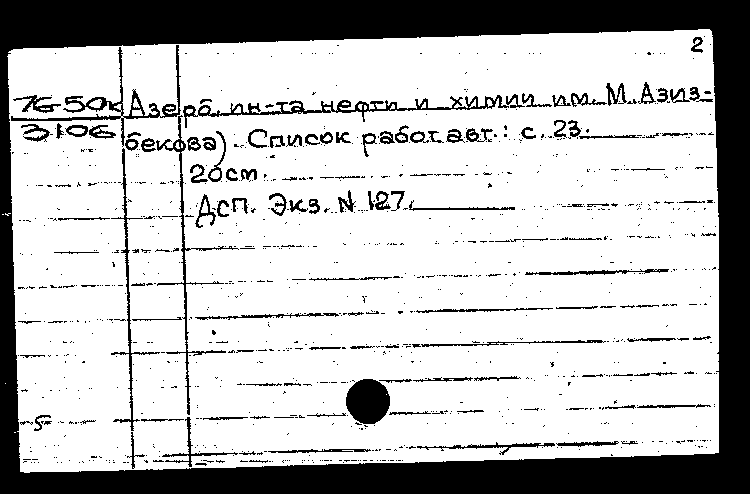 2
76-50к Азерб. ин-та нефти и химии им. М. Азиз-
3106 бекова). Список работ авт.: с. 23.
20см.
Дсп. Экз. N 127.
5